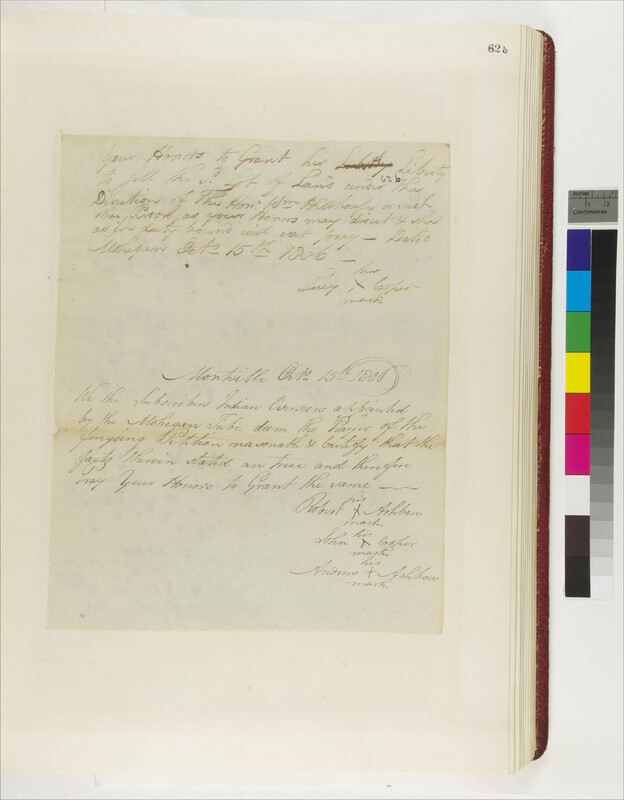 62b
Your Honors to Grant her Liberty Liberty
626
to sell the sd. lot of Land under the
Direction of The Honl. Wm Hillhouse or such
other Person, as your Honors may direct & she
as in duty bound will ever pray — Dated
Mohegan Octr. 15th 1806 —
her
Lucy X Cooper
mark
Montville Octr. 15th 1806
We the Subscribers Indian Overseers appointed
by the Mohegan Tribe deem the Prayer of the
foregoing Petition reasonable & Certify that the
facts therein stated are true and therefore
Pray Your Honors to Grant the same —
his
Robert X Ashbow
mark
his
John X Cooper
mark
his
Andrew X Ashbow
mark
Centimetres